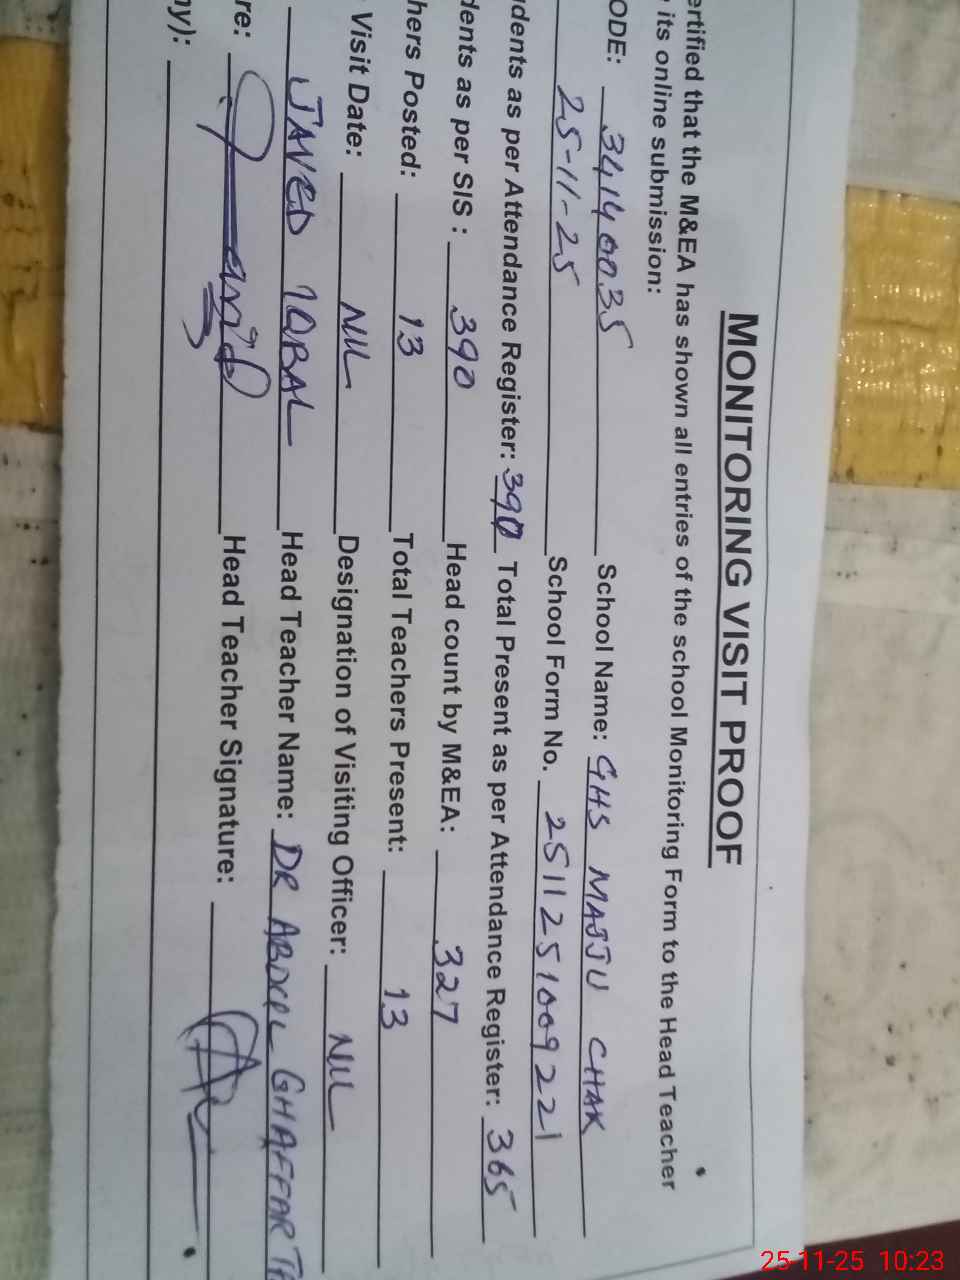 MONITORING VISIT PROOF
ertified that the M&EA has shown all entries of the school Monitoring Form to the Head Teacher
its online submission:
ODE: 34140035 School Name: GHS MAJJU CHAK
25-11-25 School Form No. 2511251009221
udents as per Attendance Register: 390 Total Present as per Attendance Register: 365
dents as per SIS : 390 Head count by M&EA: 327
hers Posted: 13 Total Teachers Present: 13
Visit Date: NIL Designation of Visiting Officer: NIL
JAVED IQBAL Head Teacher Name: DR ABDUL GHAFFAR
re: Head Teacher Signature:
ny):
25-11-25 10:23